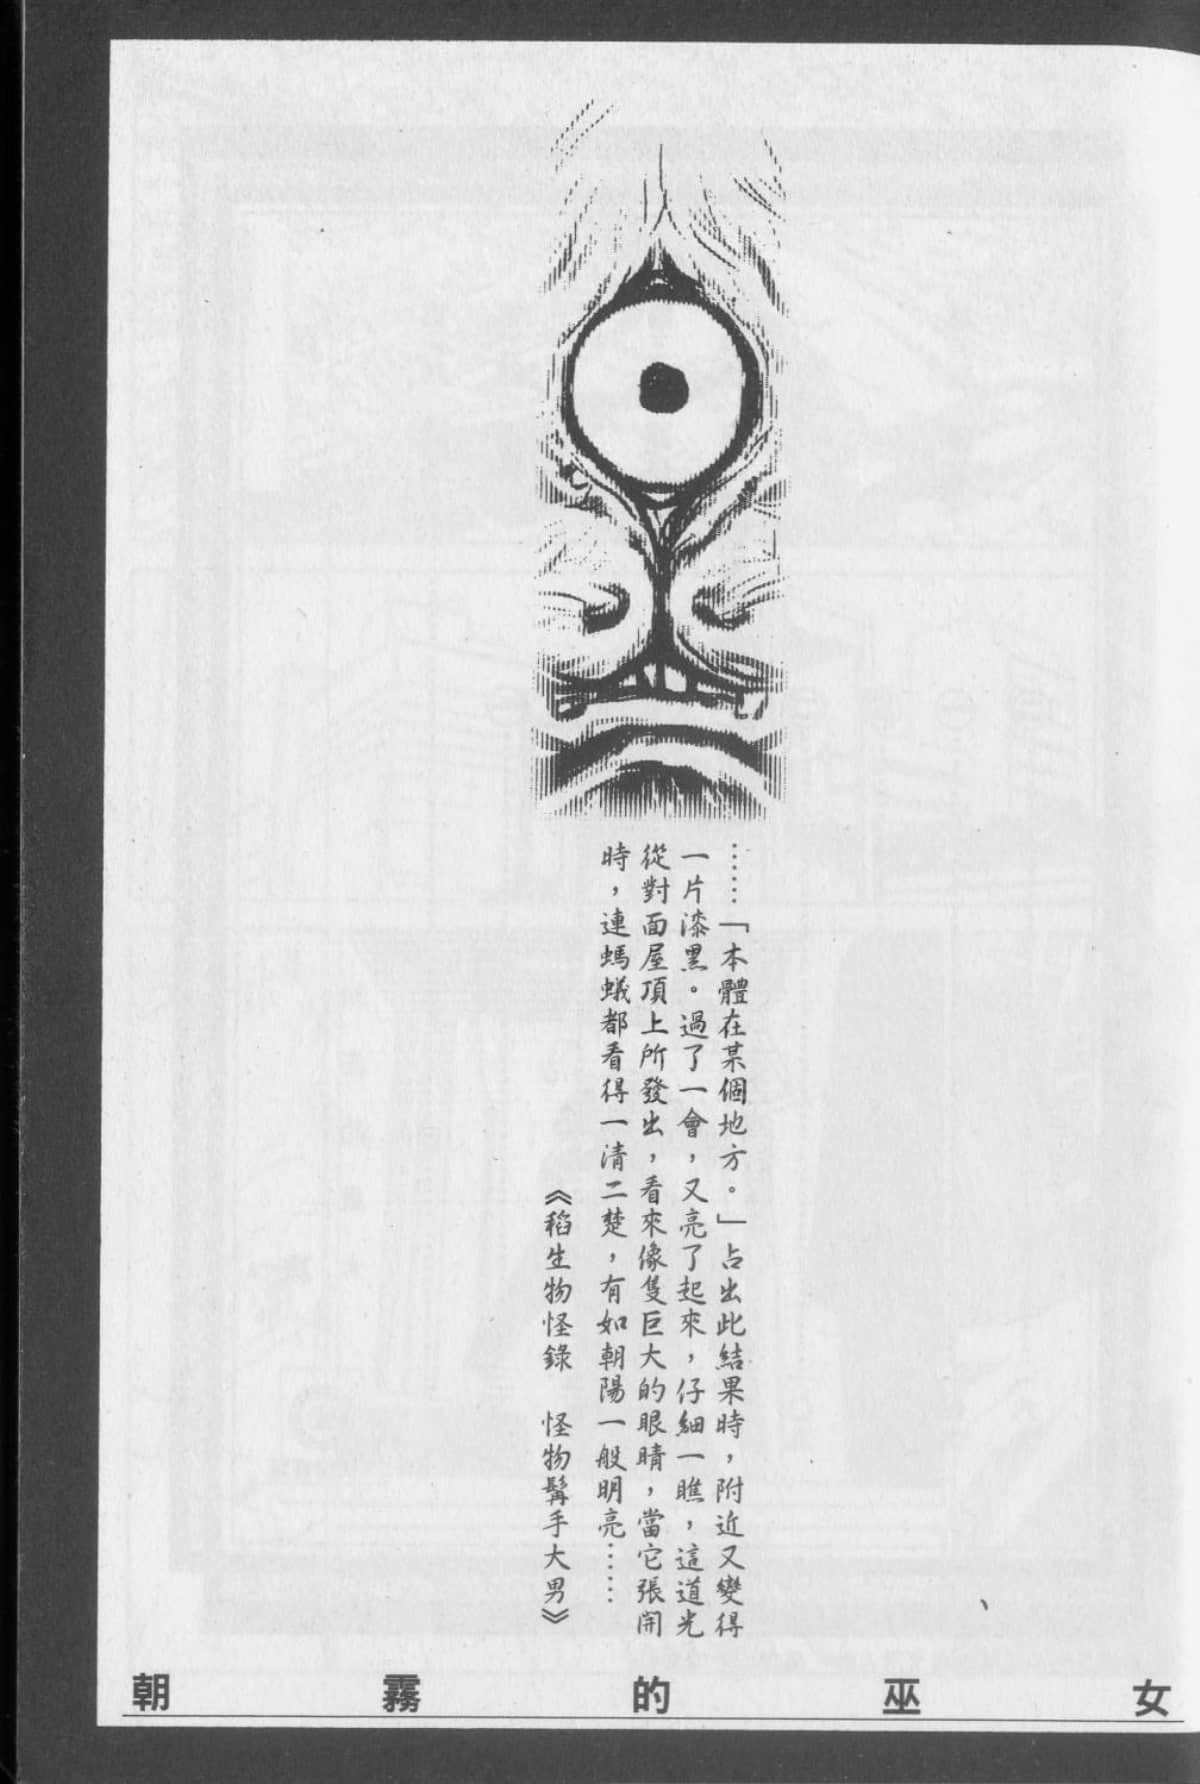 ……「本體在某個地方。」占出此結果時，附近又變得
一片漆黑。過了一會，又亮了起來，仔細一瞧，這道光
從對面屋頂上所發出，看來像隻巨大的眼睛，當它張開
時，連螞蟻都看得一清二楚，有如朝陽一般明亮……
《稻生物怪錄　怪物髯手大男》
朝霧的巫女